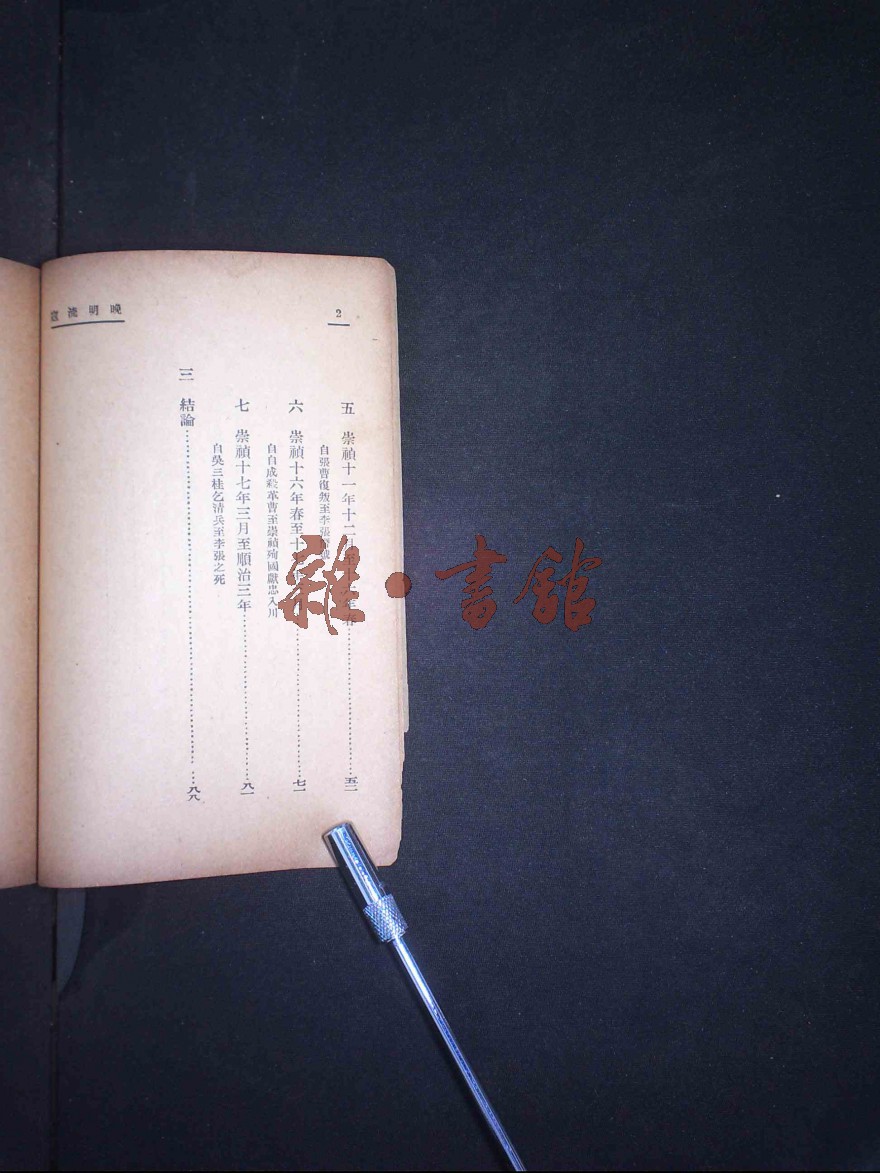 晚明流寇
2
五 崇禎十一年十二月
年春
五二
自張曹復叛至李張
六 崇禎十六年春至十
七一
自自成殺革曹至崇禎殉國獻忠入川
七 崇禎十七年三月至順治三年
八一
自吳三桂乞清兵至李張之死
三 結論
八八
雜·書館